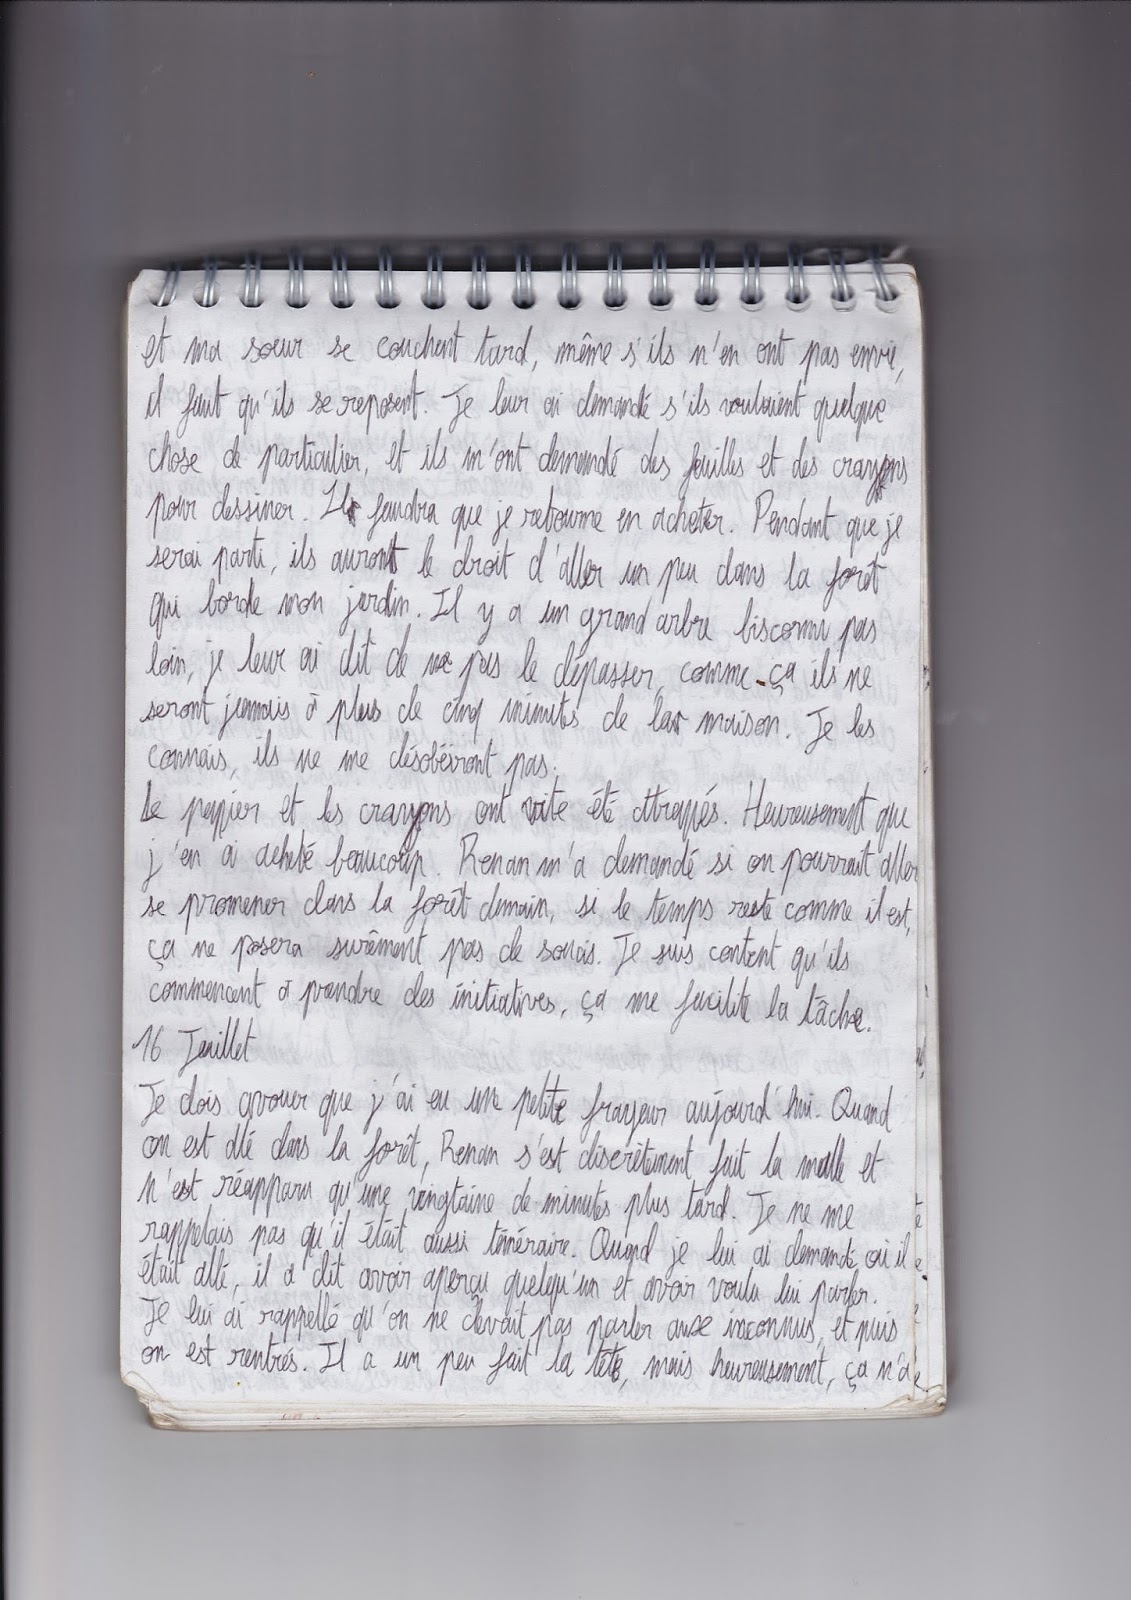 et ma sœur se couchent tard, même s'ils n'en ont pas envie,
il faut qu'ils se reposent. Je leur ai demandé s'ils voulaient quelque
chose de particulier, et ils m'ont demandé des feuilles et des crayons
pour dessiner. Il faudra que je retourne en acheter. Pendant que je
serai parti, ils auront le droit d'aller un peu dans la forêt
qui borde mon jardin. Il y a un grand arbre biscornu pas
loin, je leur ai dit de ne pas le dépasser, comme ça ils ne
seront jamais à plus de cinq minutes de la maison. Je les
connais, ils ne me désobéiront pas.
Le papier et les crayons ont vite été attrapés. Heureusement que
j'en ai acheté beaucoup. Renan m'a demandé si on pourrait aller
se promener dans la forêt demain, si le temps reste comme il est,
ça ne posera surêment pas de soucis. Je suis content qu'ils
commencent à prendre des initiatives, ça me facilite la tâche.
16 Juillet
Je dois avouer que j'ai eu une petite frayeur aujourd'hui. Quand
on est allé dans la forêt, Renan s'est discrètement fait la malle et
n'est réapparu qu'une vingtaine de minutes plus tard. Je ne me
rappelais pas qu'il était aussi téméraire. Quand je lui ai demandé où il
était allé, il a dit avoir aperçu quelqu'un et avoir voulu lui parler.
Je lui ai rappellé qu'on ne devait pas parler aux inconnus, et puis
on est rentrés. Il a un peu fait la tête, mais heureusement, ça n'a